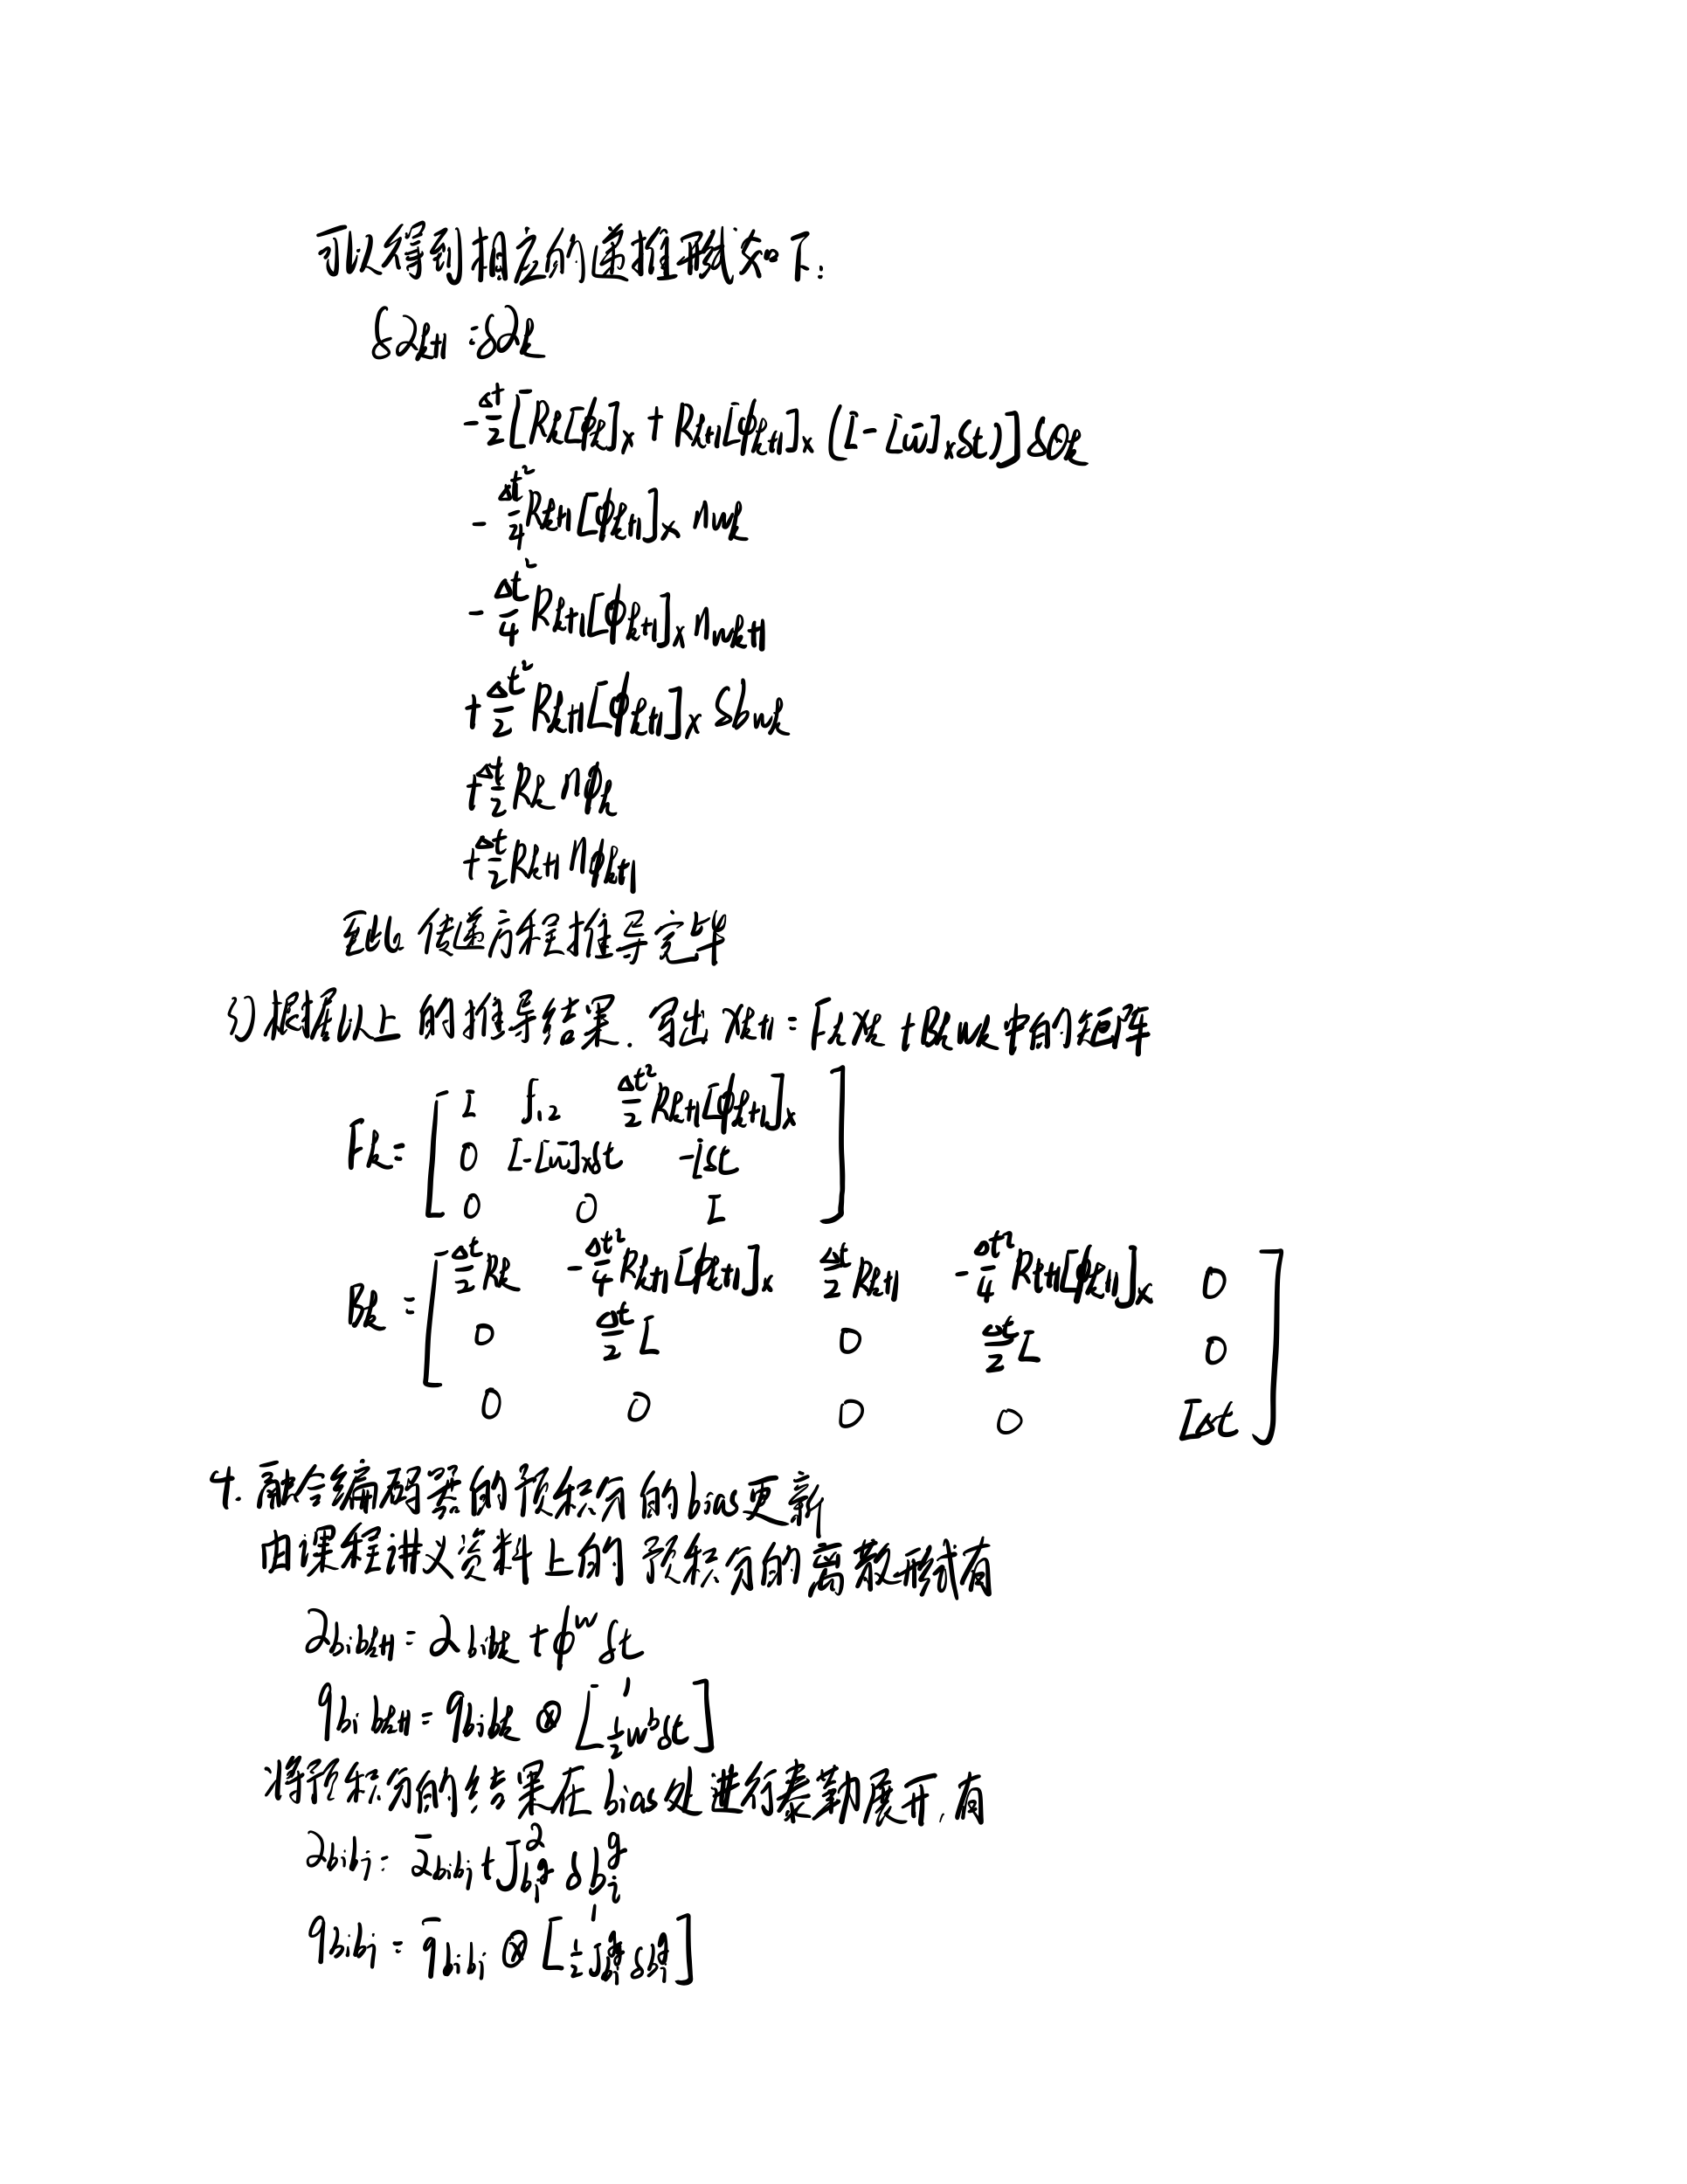 可以得到相应的递推形式如下:
δα_{k+1} = δα_k
-\frac{Δt}{2}[R_k[ϕ_k]_× + R_{k+1}[ϕ_{k+1}]_×(I-[\bar{w}]_×δt)]δθ_k
-\frac{Δt^2}{4}R_{k+1}[ϕ_{k+1}]_× n_{wk}
-\frac{Δt^2}{4}R_{k+1}[ϕ_{k+1}]_× n_{wk+1}
+\frac{Δt^2}{2}R_{k+1}[ϕ_{k+1}]_× δb_{wk}
+\frac{Δt}{2}R_k n_{ϕk}
+\frac{Δt}{2}R_{k+1} n_{ϕk+1}
至此传递方程推导完毕
3) 根据以上的推导结果. 写出 x_{k+1} = F_k x_k + B_k w_k 中的矩阵
F_k = [ I f_{12} \frac{Δt^2}{2}R_{k+1}[ϕ_{k+1}]_×
0 I-[\bar{w}]_×δt -Iδt
0 0 I ]
B_k = [ \frac{Δt}{2}R_k -\frac{Δt^2}{4}R_{k+1}[ϕ_{k+1}]_× \frac{Δt}{2}R_{k+1} -\frac{Δt^2}{4}R_{k+1}[ϕ_{k+1}]_× 0
0 \frac{Δt}{2}I 0 \frac{Δt}{2}I 0
0 0 0 0 IΔt ]
4. 融合编码器的预积分的bias更新
由课程讲义资料上的预积分的离散形式有
α_{b_i b_{k+1}} = α_{b_i b_k} + ϕ^w δt
q_{b_i b_{k+1}} = q_{b_i b_k} ⊗ [1 \frac{1}{2}w^b δt]
将预积分的结果在bias处进行泰勒展开,有
α_{b_i b_j} = \bar{α}_{b_i b_j} + J^α_{b_i^g} δb_i^g
q_{b_i b_j} = \bar{q}_{b_i b_j} ⊗ [1 \frac{1}{2}J^q_{b_i^g} δb_i^g]